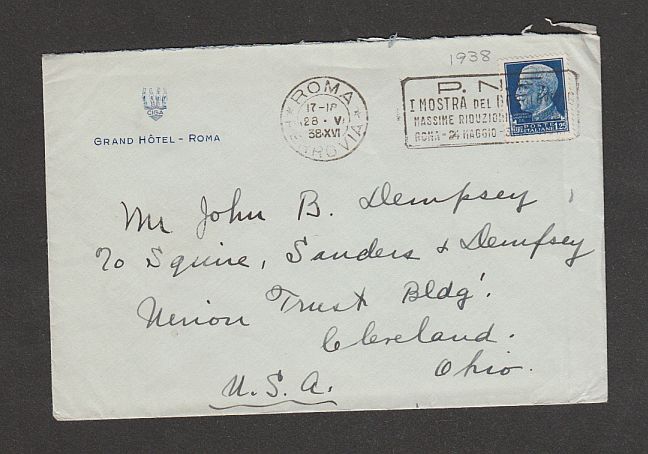 1938
CIGA
GRAND HÔTEL - ROMA
ROMA
17-18
28 · V
38·XVI
FERROVIA
P. N.
I MOSTRA DEL
MASSIME RIDUZION
ROMA - 24 MAGGIO -
POSTE
ITALIANE
1.25
Mr John B. Dempsey
℅ Squire, Sanders & Dempsey
Union Trust Bldg.
Cleveland.
Ohio.
U.S.A.